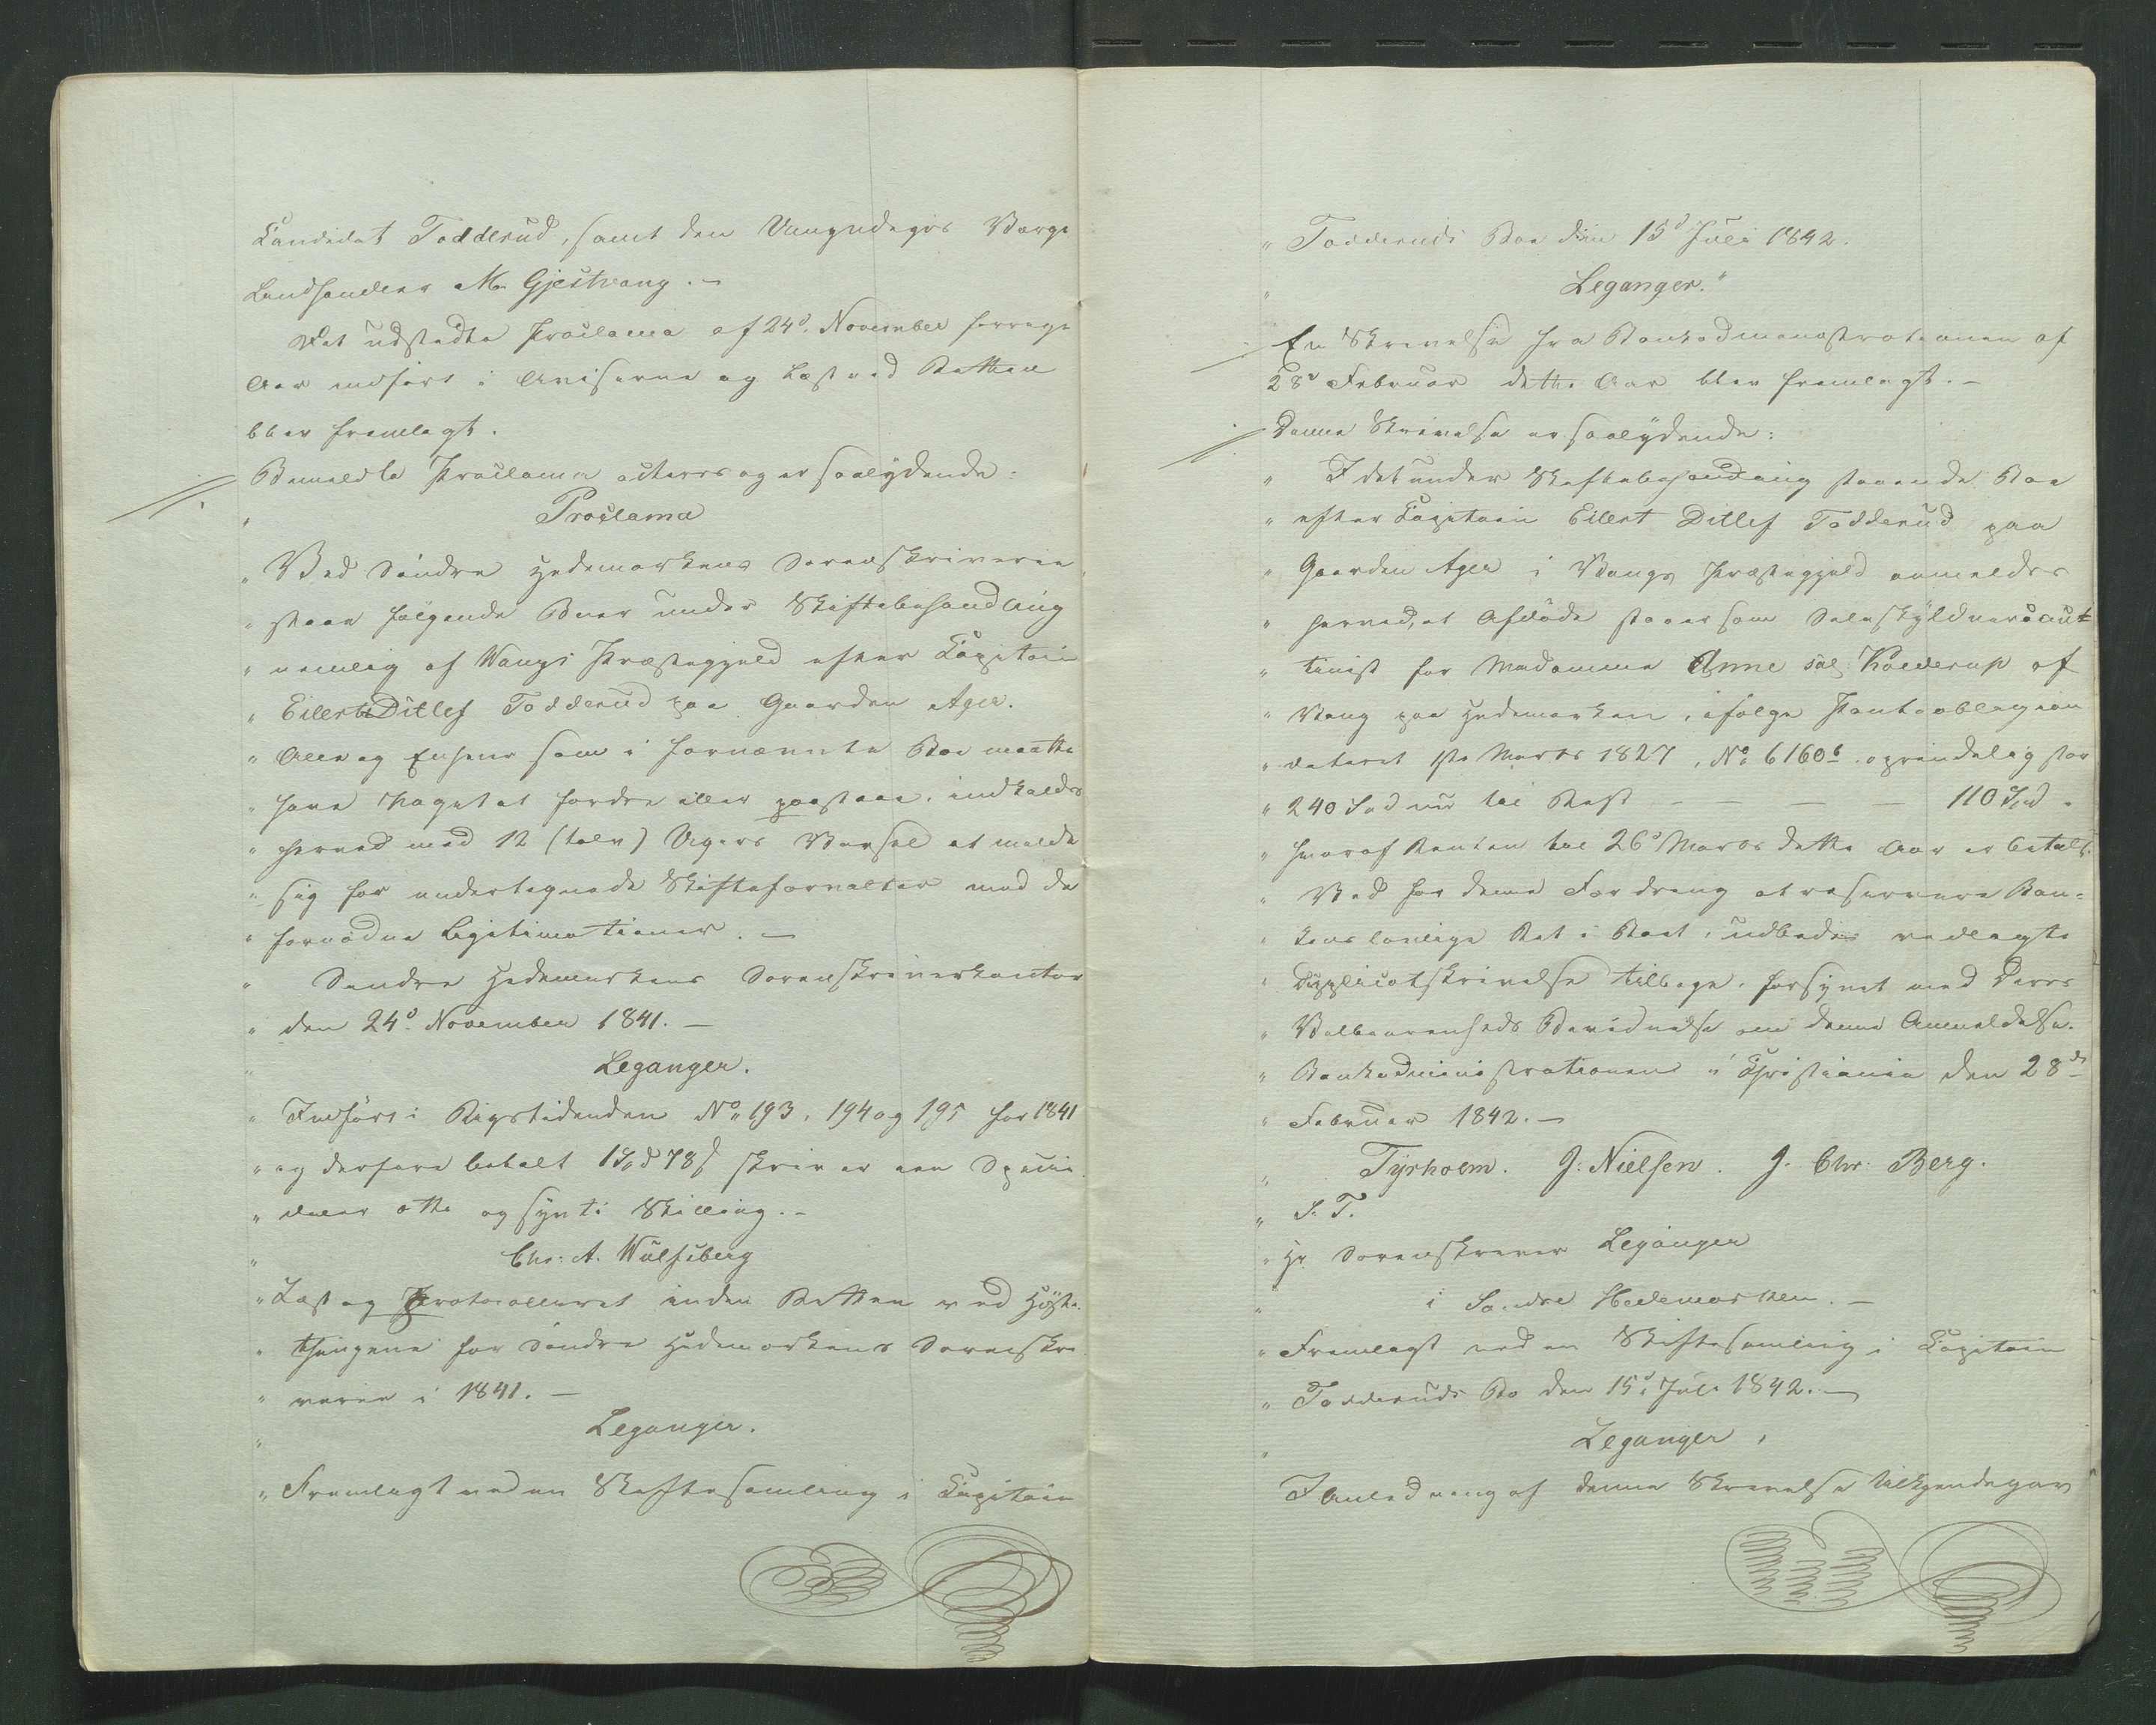 Candidat Todderud, samt den Umyndiges Verge
Landhandler M. Gjestvang. –
Det udstædte Proclama af 24d. November forrige
Aar indført i Aviserne og læst ved Retten
blev fremlagt.
Bemeldte Proclama acteres og er saalydende:
" Proclama
" Ved Søndre Hedemarkens Sorenskriverie
" staae følgende Boer under Skiftebehandling
" nemlig af Vangs Præstegjeld efter Capitain
" Eilert Ditlef Todderud paa Gaarden Ager.
" Alle og Enhver som i fornævnte Boe maatte
" have Noget at fordre eller paastaae, indkaldes
" herved med 12 (tolv) Ugers Varsel at melde
" sig for undertegnede Skifteforvalter med de
" fornødne Legitimationer. –
" Søndre Hedemarkens Sorenskriverkontor
" den 24d. November 1841. –
" Leganger.
" Indført i Rigstidenden No 193, 194 og 195 for 1841
" og derfore betalt 1 Spd 78 s skriver een Specie
" daler otte og sytti Skilling. –
" Chr: A. Wulfsberg
" Læst og Protocolleret inden Retten ved Høste
" thingene for Søndre Hedemarkens Sorenskri
" verie i 1841. –
" Leganger.
" Fremlagt ved en Skiftesamling i Capitain
" Todderuds Boe den 15d Juli 1842.
" Leganger."
En Skrivelse fra Bankadministrationen af
28d Februar dette Aar blev fremlagt. –
Denne Skrivelse er saalydende:
" I det under Skiftebehandling staaende Boe
" efter Capitain Eilert Ditlef Todderud paa
" Gaarden Ager i Vangs Præstegjeld anmeldes
" herved, at Afdøde staaer som Selvskyldnercaut
" tinist for Madamme Anne sal: Kolderup af
" Vang paa Hedemarken, ifølge Panteobligasion
" dateret 1ste Marts 1827, No 6160b oprindelig stor
" 240 Spd nu til Rest – – – – 110 Spd.
" hvoraf Renten til 26d Marts dette Aar er betalt.
" Ved for denne Fordring at reservere Ban=
" kens lovlige Ret i Boet, udbedes vedlagte
" Duplicatskrivelse tilbage, forsynet med Deres
" Velbaarenheds Bevidnelse om denne Anmeldelse.
" Bankadministrationen i Christiania den 28de
" Februar 1842. –
" Tyrholm. J: Nielsen. J. Chr: Berg.
" S. T.
" Hr Sorenskriver Leganger
" i Søndre Hedemarken. –
" Fremlagt ved en Skiftesamling i Capitain
" Todderuds Bo den 15d Juli 1842. –
" Leganger.
I Anledning af denne Skrivelse tilkjendegav